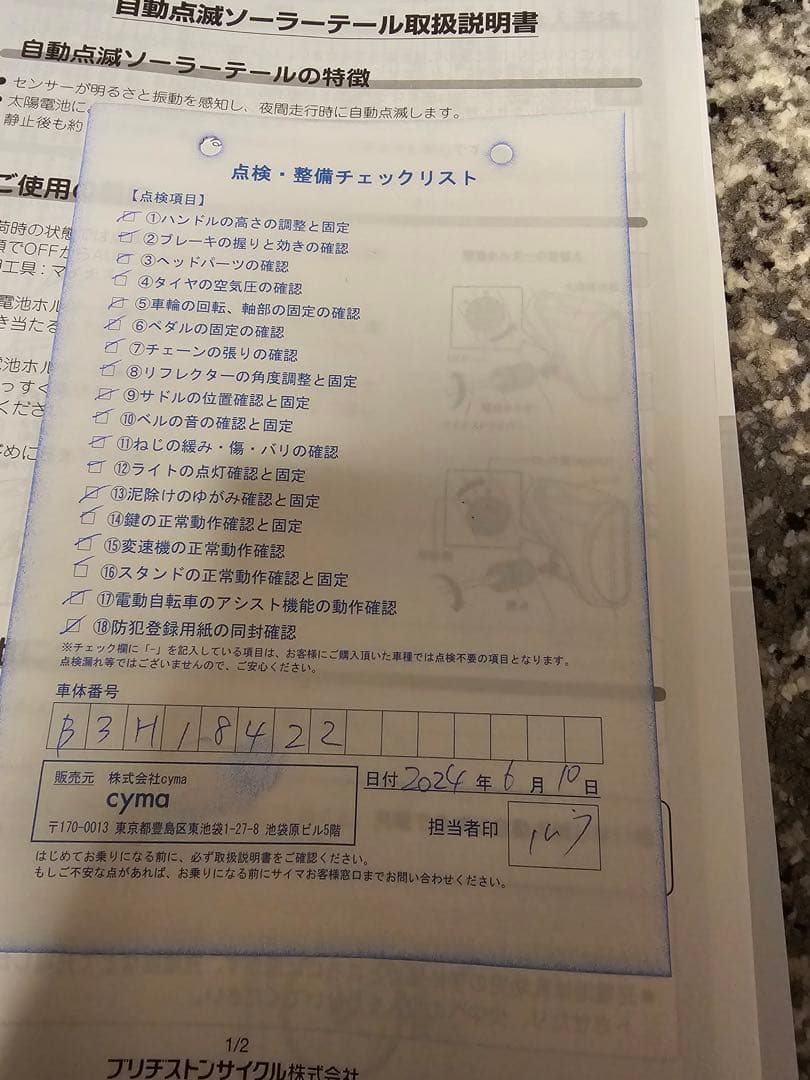 自動点滅ソーラーテール取扱説明書
自動点滅ソーラーテールの特徴
• センサーが明るさと振動を感知し、夜間走行時に自動点滅します。
• 太陽電池に
静止後も約
ご使用の
荷時の状態
頂でOFFから
工具：マ
電池ホル
き当たる
電池ホル
っすぐ
くださ
点検・整備チェックリスト
【点検項目】
①ハンドルの高さの調整と固定
②ブレーキの握りと効きの確認
③ヘッドパーツの確認
④タイヤの空気圧の確認
⑤車輪の回転、軸部の固定の確認
⑥ペダルの固定の確認
⑦チェーンの張りの確認
⑧リフレクターの角度調整と固定
⑨サドルの位置確認と固定
⑩ベルの音の確認と固定
⑪ねじの緩み・傷・バリの確認
⑫ライトの点灯確認と固定
⑬泥除けのゆがみ確認と固定
⑭鍵の正常動作確認と固定
⑮変速機の正常動作確認
⑯スタンドの正常動作確認と固定
⑰電動自転車のアシスト機能の動作確認
⑱防犯登録用紙の同封確認
※チェック欄に「-」を記入している項目は、お客様にご購入頂いた車種では点検不要の項目となります。
点検漏れ等ではございませんので、ご安心ください。
車体番号
B3H18422
日付 2024 年 6 月 10 日
販売元 株式会社cyma
cyma
〒170-0013 東京都豊島区東池袋1-27-8 池袋原ビル5階
担当者印
はじめてお乗りになる前に、必ず取扱説明書をご確認ください。
もしご不安な点があれば、お乗りになる前にサイマお客様窓口までお問い合わせください。
1/2
ブリヂストンサイクル株式会社